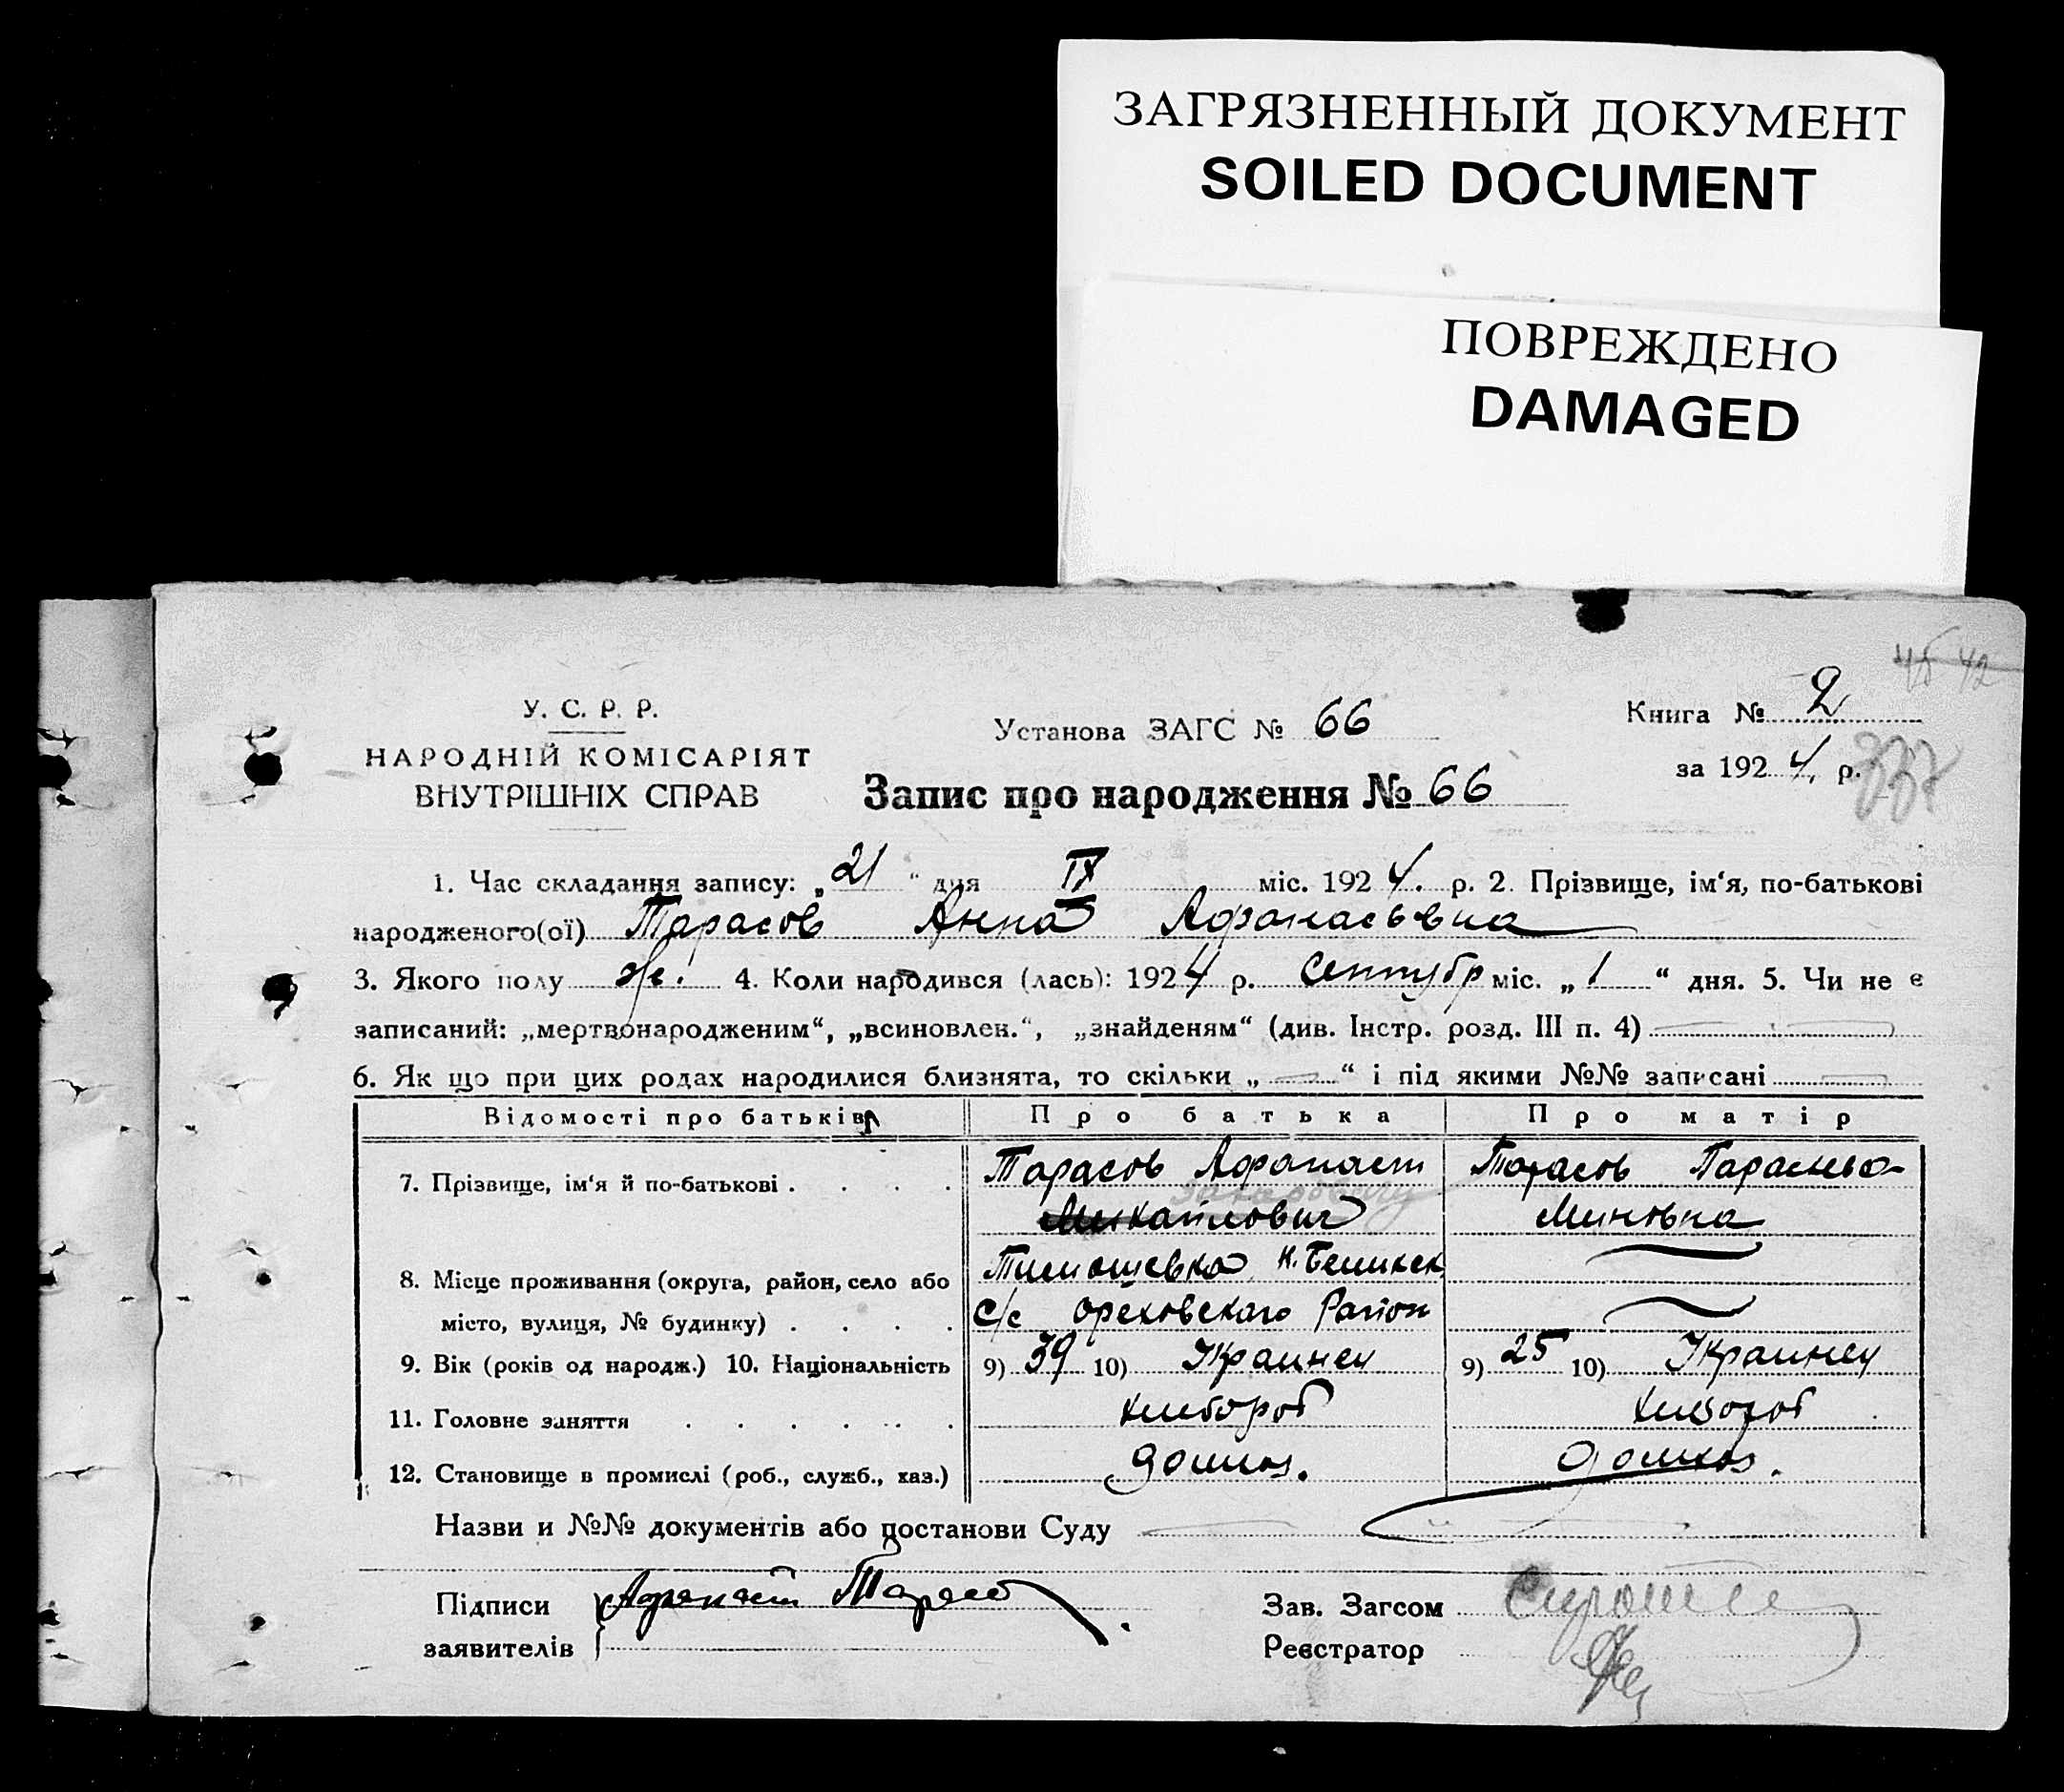 ЗАГРЯЗНЕННЫЙ ДОКУМЕНТ
SOILED DOCUMENT
ПОВРЕЖДЕНО
DAMAGED
45 42
У. С. Р. Р.
НАРОДНІЙ КОМІСАРІЯТ
ВНУТРІШНІХ СПРАВ
Установа ЗАГС № 66
Книга № 2
за 1924 р.
337
Запис про народження № 66
1. Час складання запису: „21“ дня IX міс. 1924. р. 2. Прізвище, ім‘я, по-батькові
народженого(ої) Тарасов Анна Афанасьевна
3. Якого полу ж. 4. Коли народився (лась): 1924 р. Сентябр міс. „1“ дня. 5. Чи не є
записаний: „мертвонародженим“, „всиновлен.“, „знайденям“ (див. Інстр. розд. III п. 4)
6. Як що при цих родах народилися близнята, то скільки „ — “ і під якими №№ записані
Відомості про батьків Про батька Про матір
7. Прізвище, ім‘я й по-батькові . . . . Тарасов Афанасий Тарасов
Захарович
Михайлович Миновна
8. Місце проживання (округа, район, село або Тимошевка
місто, вулиця, № будинку) . . . . с/с Ореховскаго Район
9. Вік (років од народж.) 10. Національність 9) 39 10) Украинец 9) 25 10) Украинец
11. Головне заняття . . . . . . хлебороб хлебороб
12. Становище в промислі (роб., служб., хаз.) домхоз. домхоз.
Назви и №№ документів або постанови Суду
Підписи Афанасий Тарасов Зав. Загсом
заявителів Реєстратор